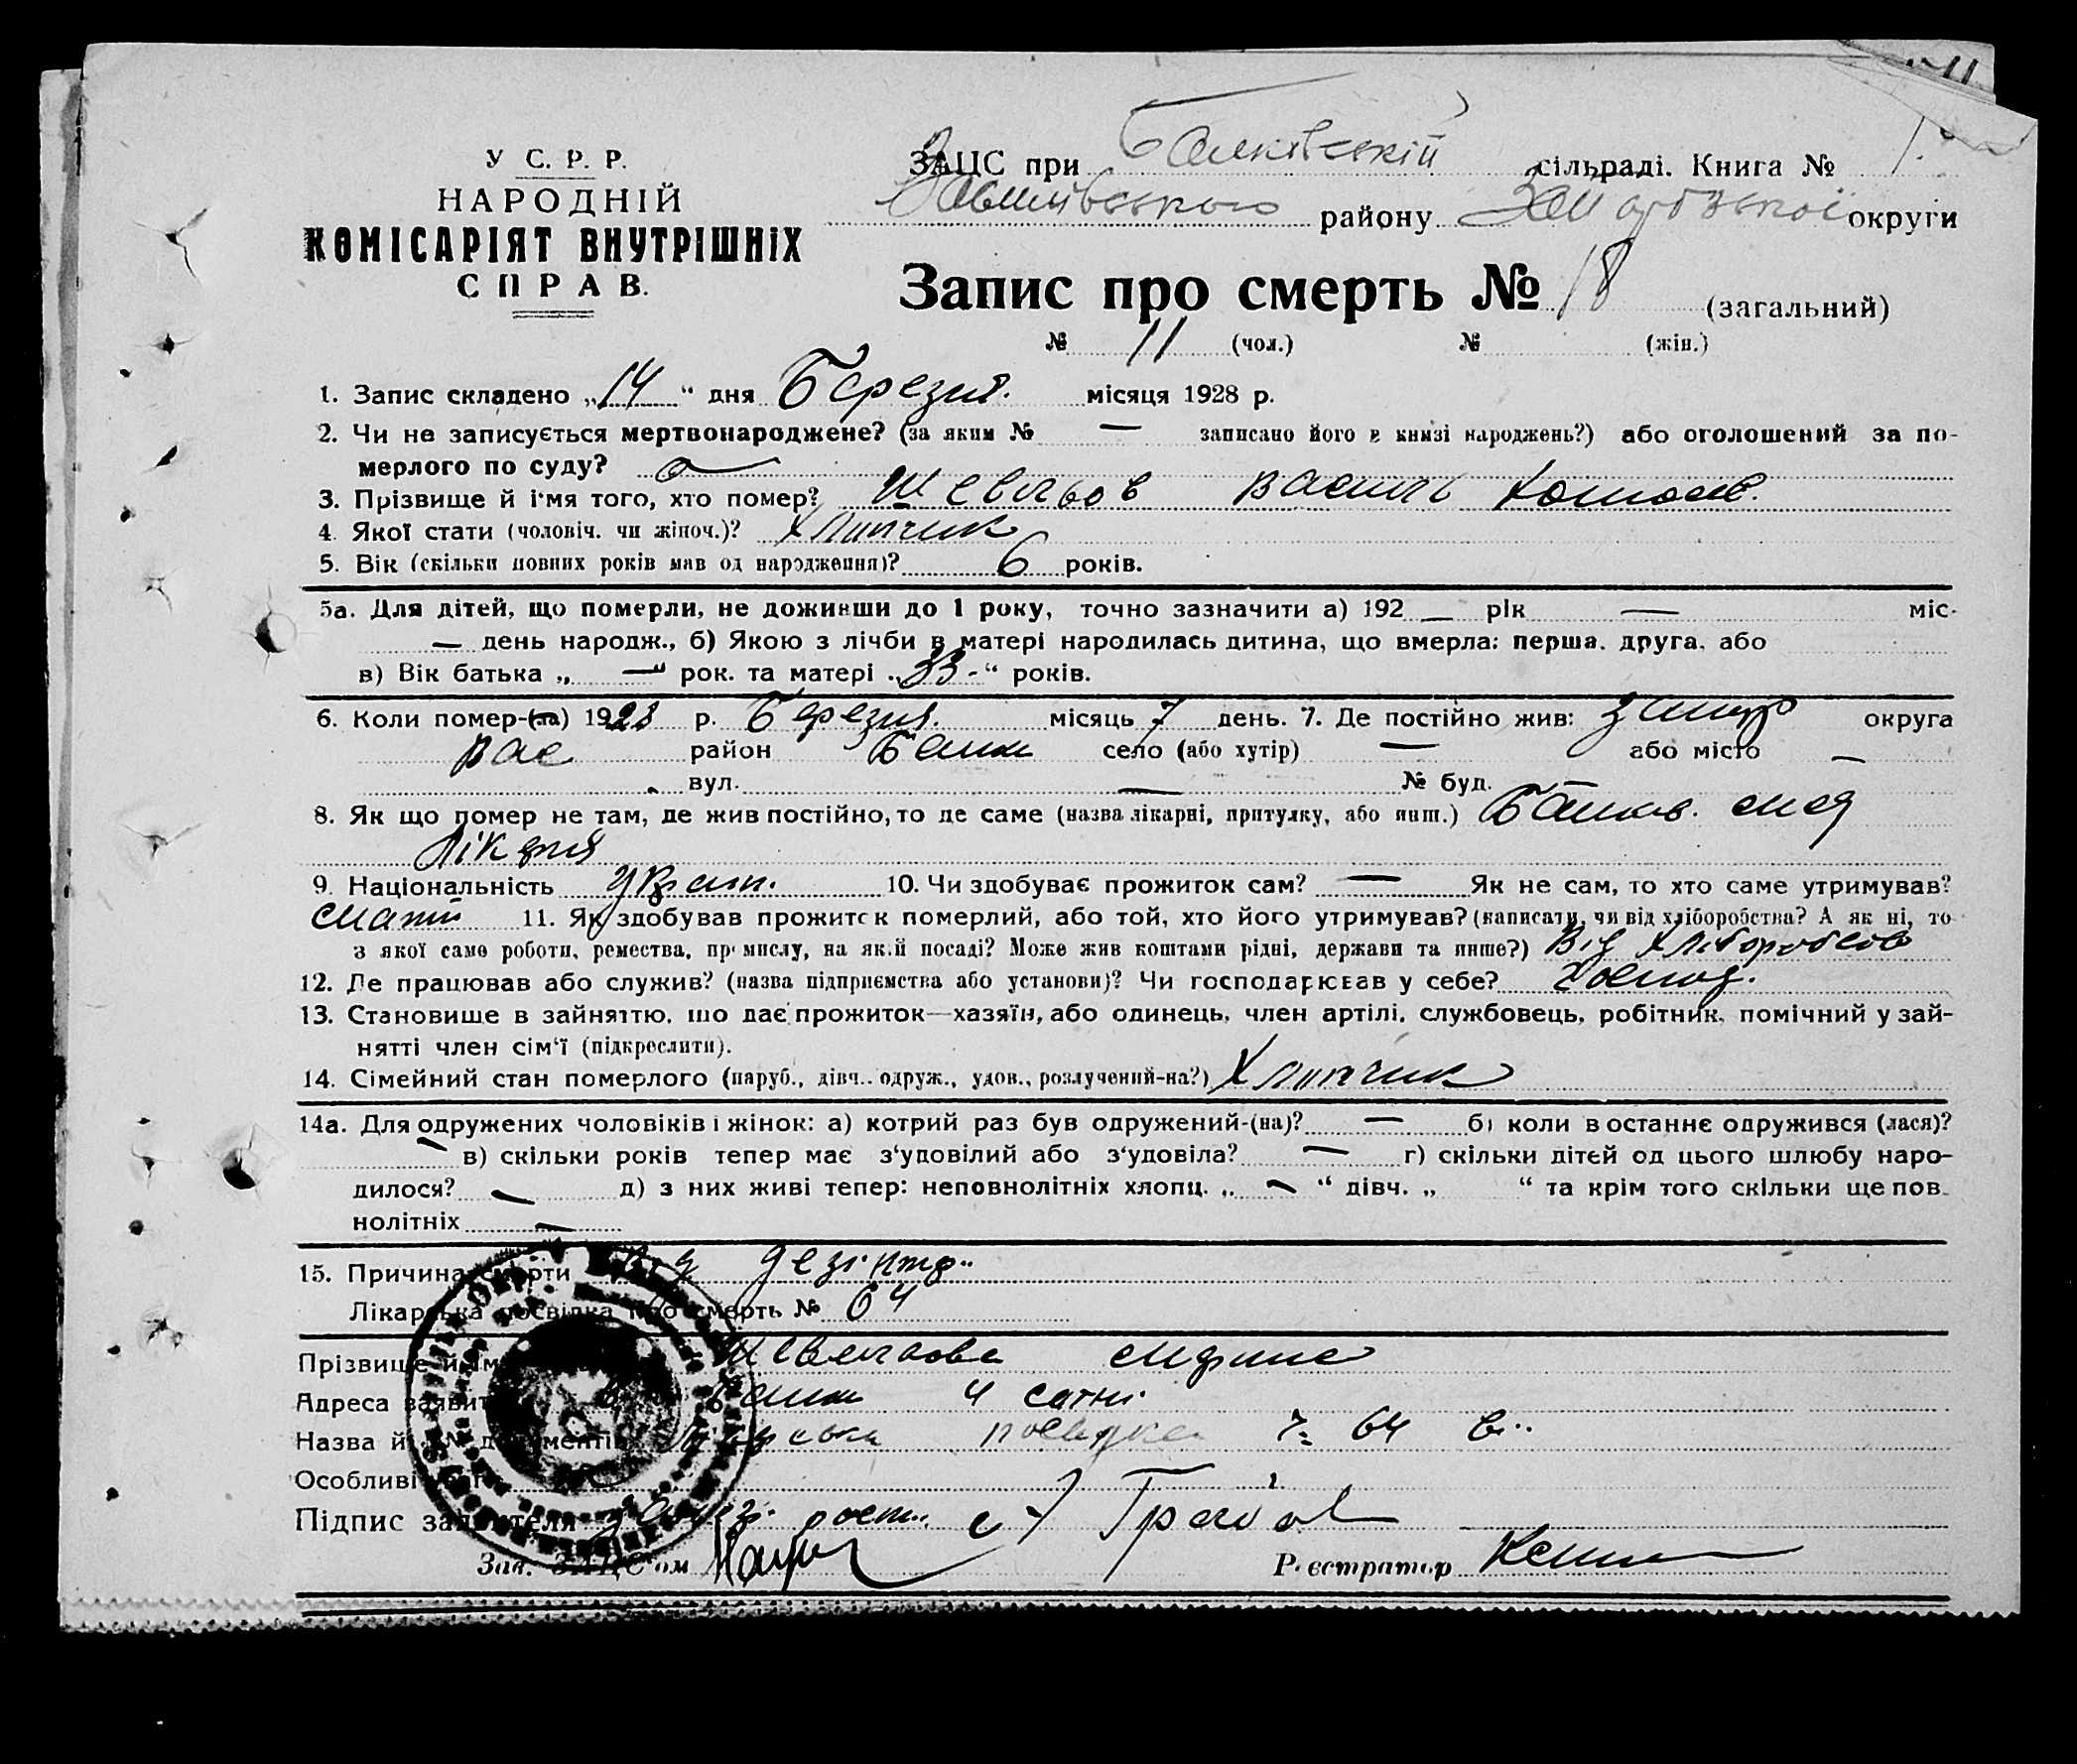 У С. Р. Р.
НАРОДНІЙ
КОМІСАРІЯТ ВНУТРІШНІХ
СПРАВ.
ЗАЦС при Балківській сільраді. Книга №
Василівського району Запорізької округи
Запис про смерть № 18 (загальний)
№ 11 (чол.) № (жін.)
1. Запис складено „14“ дня Березня. місяця 1928 р.
2. Чи не записується мертвонароджене? (за яким № — записано його в книзі народжень?) або оголошений за по-
мерлого по суду?
3. Прізвище й ім'я того, хто помер? Василь
4. Якої стати (чоловіч. чи жіноч.)? Хлипчик
5. Вік (скільки повних років мав од народження)? 6 років.
5а. Для дітей, що померли, не доживши до 1 року, точно зазначити а) 192 — рік — міс-
— день народж., б) Якою з лічби в матері народилась дитина, що вмерла: перша, друга, або
в) Вік батька „—“ рок. та матері „33-“ років.
6. Коли помер-(ла) 1928 р. Березня. місяць 7 день. 7. Де постійно жив: Запор округа
Вас район Балки село (або хутір) — або місто —
вул. — № буд.
8. Як що помер не там, де жив постійно, то де саме (назва лікарні, притулку, або инш.)
Лікарня
9. Національність Україн. 10. Чи здобуває прожиток сам? — Як не сам, то хто саме утримував?
мати 11. Як здобував прожиток померлий, або той, хто його утримував? (написати, чи від хліборобства? А як ні, то
з якої саме роботи, ремества, промислу, на якій посаді? Може жив коштами рідні, держави та инше?) Від Хліборобств
12. Де працював або служив? (назва підприємства або установи)? Чи господарював у себе? Господ.
13. Становище в зайняттю, що дає прожиток—хазяїн, або одинець, член артілі, службовець, робітник, помічний у зай-
нятті член сім'ї (підкреслити).
14. Сімейний стан померлого (паруб., дівч., одруж., удов., розлучений-на?) Хлипчик
14а. Для одружених чоловіків і жінок: а) котрий раз був одружений-(на)? — б) коли в останнє одружився (лася)?
— в) скільки років тепер має з'удовілий або з'удовіла? — г) скільки дітей од цього шлюбу наро-
дилося? — д) з них живі тепер: неповнолітніх хлопц. „—“ дівч. „ “ та крім того скільки ще пов-
нолітніх —
15. Причина смерти Від дезінтр..
Лікарська посвідка про смерть № 64
Прізвище й ім
Адреса заявит Балки 4 сотні
Назва й № документів посвідка № 64
Особливі
Підпис заявителя
Зав. ЗАЦС'ом
Реєстратор